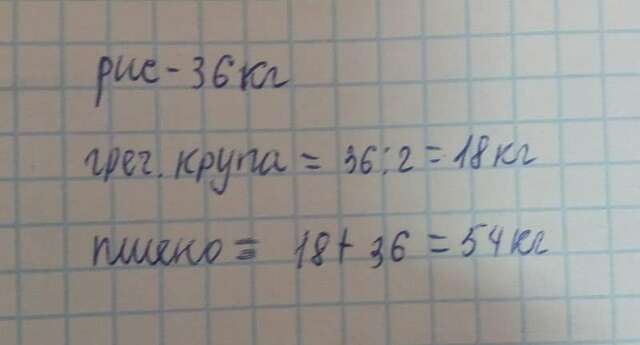 рис - 36 кг
греч. крупа = 36 : 2 = 18 кг
пшено = 18 + 36 = 54 кг